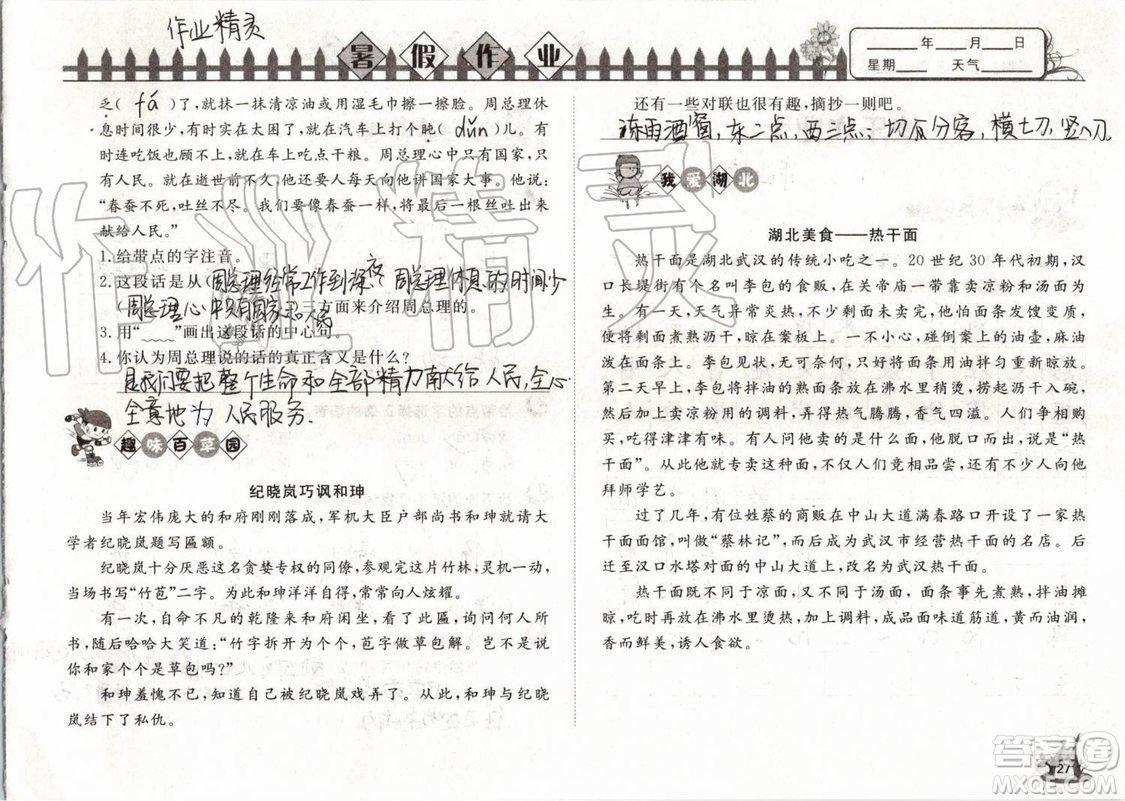 作业精灵
暑假作业
____年____月____日
星期____ 天气____
乏( fá )了，就抹一抹清凉油或用湿毛巾擦一擦脸。周总理休
息时间少，实在太困了，就在汽车上打个盹( dǔn )儿。有
时连吃饭也顾不上，就在车上吃点干粮。周总理心中只有国家，
只有人民。就在逝世前不久，他还坚持每天给他讲国家大事。他说：
“春蚕不死，吐丝不尽。我们要像春蚕一样，将最后一根丝吐出来
献给人民。”
1.给带点的字注音。
2.这段话是从(周总理经常工作到深夜 周总理休息的时间少
周总理心中只有国家和人民)三方面来介绍周总理的。
3. 用“﹏﹏”画出这段话的中心句。
4.你认为周总理说的话的真正含义是什么？
是我们要把整个生命和全部精力献给人民，全心
全意地为人民服务.
趣味百草园
纪晓岚巧讽和珅
当年宏伟庞大的和府刚刚落成，军机大臣户部尚书和珅就请大
学者纪晓岚题写匾额。
纪晓岚十分厌恶这名贪婪的同僚，参观完这片竹林，灵机一动，
当场书写“竹苞”二字。为此和珅洋洋得意，常常向人炫耀。
有一次，自命不凡的乾隆来和府闲坐，看了此匾，询问何人所
书，随后哈哈大笑道：“竹字拆开为个个，苞字做草包解。岂不是说
你和家个个是草包吗？”
和珅羞愧不已，知道自己被纪晓岚戏弄了。从此，和珅与纪晓
岚结下了私仇。
还有一些对联也很有趣，摘抄一则吧。
冻雨洒窗，东二点，西三点；切瓜分客，横七刀，竖八刀
我爱湖北
湖北美食——热干面
热干面是湖北武汉的传统小吃之一。20 世纪 30 年代初期，汉
口长堤街有个名叫李包的食贩，在关帝庙一带靠卖凉粉和汤面为
生。有一天，天气异常炎热，不少剩面未卖完，他怕面条发馊变质，
便将剩面煮熟沥干，晾在案板上。一不小心，碰倒案上的油壶，麻油
泼在面条上。李包见状，无可奈何，只好将面条用油拌匀重新晾放。
第二天早上，李包将拌油的熟面条放在沸水里稍烫，捞起沥干入碗，
然后加上卖凉粉用的调料，弄得热气腾腾，香气四溢。人们争相购
买，吃得津津有味。有人问他卖的是什么面，他脱口而出，说是“热
干面”。从此他就专卖这种面，不仅人们竞相品尝，还有人向他
拜师学艺。
过了几年，有位姓蔡的商贩在中山大道满春路口开设了一家热
干面面馆，叫做“蔡林记”，而后成为武汉市经营热干面的名店。后
迁至汉口水塔对面的中山大道上，改名武汉热干面。
热干面既不同于凉面，又不同于汤面，面条事先煮熟，拌油摊
晾，吃时再放在沸水里烫热，加上调料，成品面味道筋道，黄而油润，
香而鲜美，诱人食欲。
27
作业精灵
答案圈
MXQE.COM